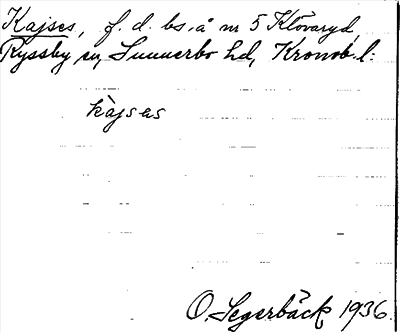 Kajses, f. d. bs. å nr 5 Klövaryd,
Ryssby sn, Sunnerbo hd, Kronob. l:
kàjsas
O. Segerbäck 1936.